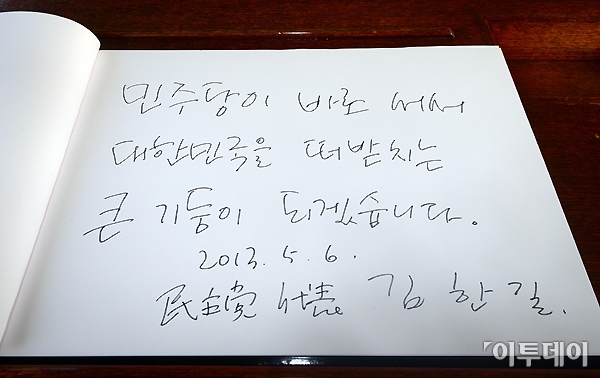 민주당이 바로 서서
대한민국을 떠받치는
큰 기둥이 되겠습니다.
2013. 5. 6.
民主党 代表 김 한 길.
이투데이